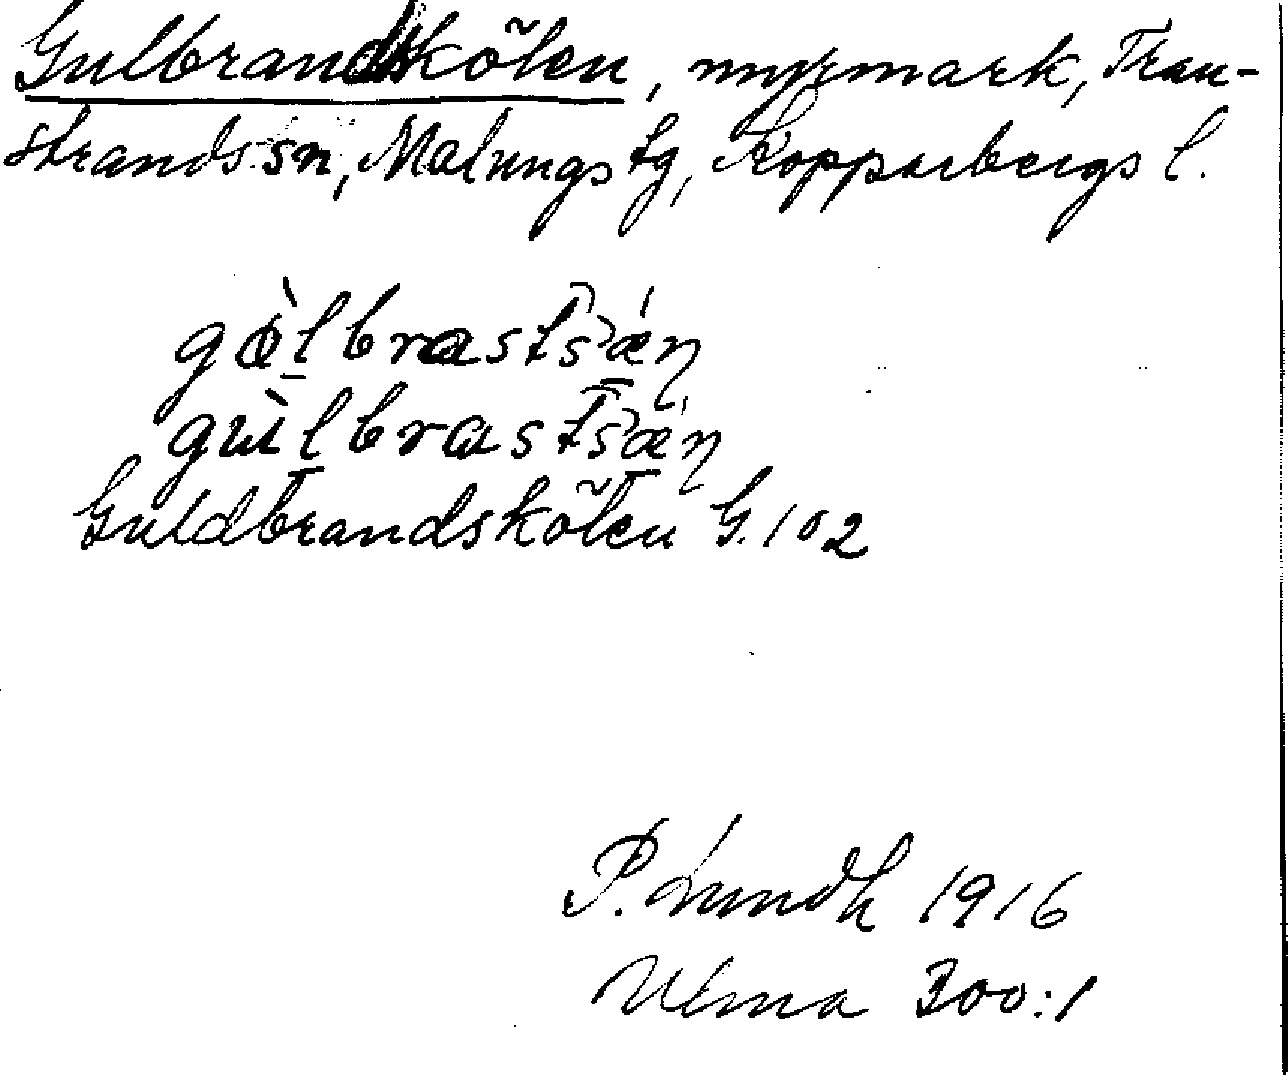 Gulbrandskölen, myrmark, Tran-
strands sn, Malungs tg, Kopparbergs l.
Guldbrandskölen G. 102
P. Lundh 1916
Ulma 300:1